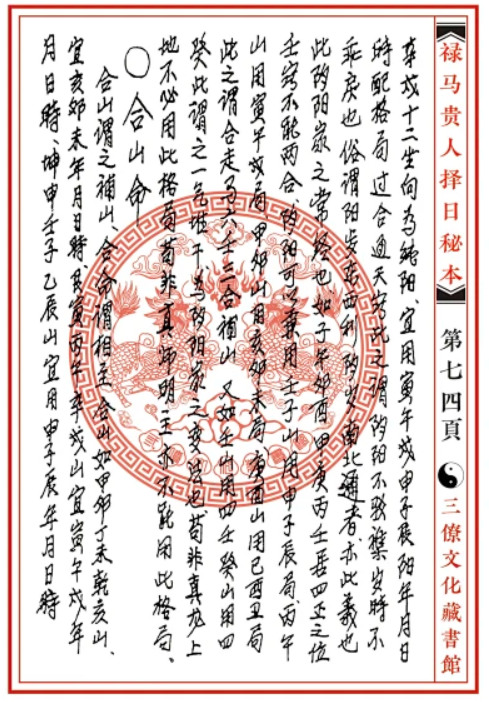 禄马贵人择日秘本
第七四頁
三僚文化藏書館
辛戌十二坐向为純阳、宜用寅午戌申子辰阳年月日
時配格局过合通天窍此之谓阴阳不驳雜岁時不
乖戾也俗谓阳年东西利阴年南北通者亦此義也
此阴阳家之常经也如子午卯酉甲庚丙壬居四正之位
壬窍不能两合、阴阳可以兼用、壬子山用申子辰局、丙午
山用寅午戌局、甲卯山用亥卯未局庚酉山用巳酉丑局
此之谓合走马六壬三合補山、又如壬山用四壬癸山用四
癸此谓之一气 干為阴阳家之变法也苟非真龙上
地不必用此格局苟非真师明主亦不能用此格局、
〇合山命
合山谓之補山、合命谓相主、合山如甲卯丁未乾亥山、
宜亥卯未年月日時艮寅丙午辛戌山宜寅午戌年
月日時、坤申壬子乙辰山宜用申子辰年月日時